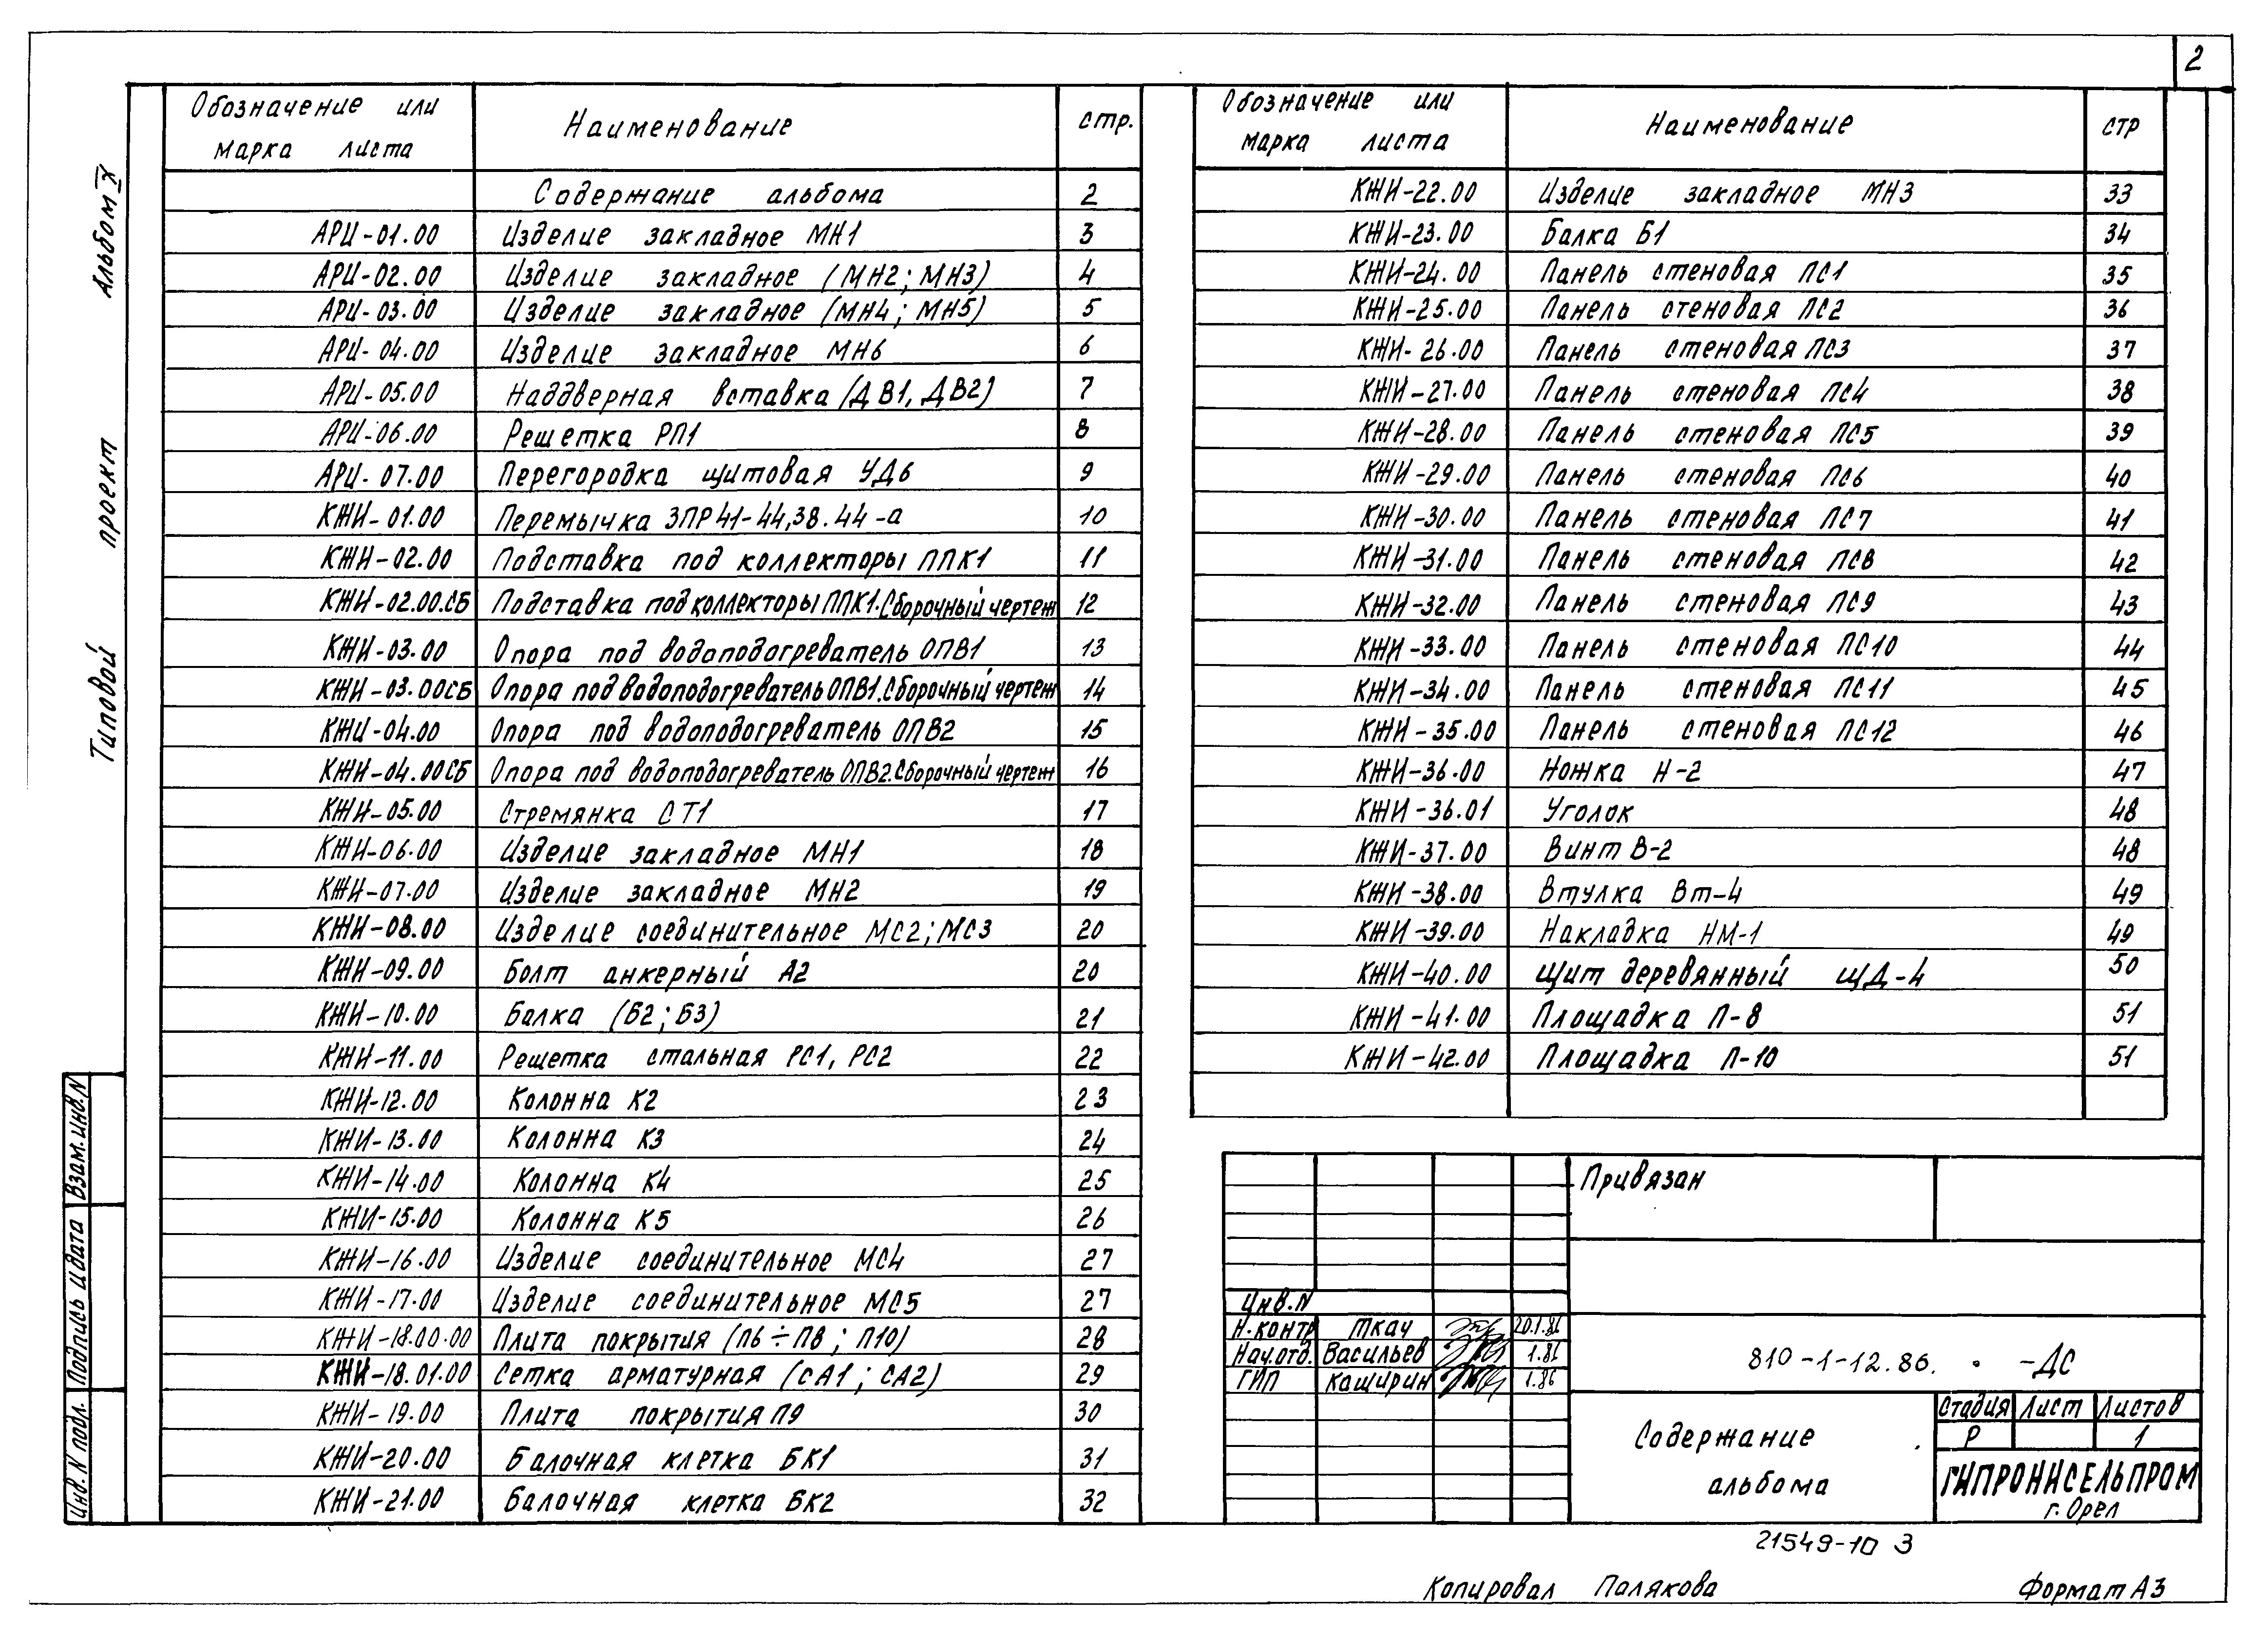 2
Типовой проект Альбом X
Обозначение или марка листа Наименование стр.
Содержание альбома 2
АРИ-01.00 Изделие закладное МН1 3
АРИ-02.00 Изделие закладное (МН2; МН3) 4
АРИ-03.00 Изделие закладное (МН4; МН5) 5
АРИ-04.00 Изделие закладное МН6 6
АРИ-05.00 Наддверная вставка (ДВ1, ДВ2) 7
АРИ-06.00 Решетка РП1 8
АРИ-07.00 Перегородка щитовая УД6 9
КЖИ-01.00 Перемычка 3ПР41-44,38.44-а 10
КЖИ-02.00 Подставка под коллекторы ППК1 11
КЖИ-02.00.СБ Подставка под коллекторы ППК1. Сборочный чертеж 12
КЖИ-03.00 Опора под водоподогреватель ОПВ1 13
КЖИ-03.00СБ Опора под водоподогреватель ОПВ1. Сборочный чертеж 14
КЖИ-04.00 Опора под водоподогреватель ОПВ2 15
КЖИ-04.00СБ Опора под водоподогреватель ОПВ2. Сборочный чертеж 16
КЖИ-05.00 Стремянка СТ1 17
КЖИ-06.00 Изделие закладное МН1 18
КЖИ-07.00 Изделие закладное МН2 19
КЖИ-08.00 Изделие соединительное МС2; МС3 20
КЖИ-09.00 Болт анкерный А2 20
КЖИ-10.00 Балка (Б2; Б3) 21
КЖИ-11.00 Решетка стальная РС1, РС2 22
КЖИ-12.00 Колонна К2 23
КЖИ-13.00 Колонна К3 24
КЖИ-14.00 Колонна К4 25
КЖИ-15.00 Колонна К5 26
КЖИ-16.00 Изделие соединительное МС4 27
КЖИ-17.00 Изделие соединительное МС5 27
КЖИ-18.00.00 Плита покрытия (П6÷П8; П10) 28
КЖИ-18.01.00 Сетка арматурная (СА1; СА2) 29
КЖИ-19.00 Плита покрытия П9 30
КЖИ-20.00 Балочная клетка БК1 31
КЖИ-21.00 Балочная клетка БК2 32
Обозначение или марка листа Наименование стр
КЖИ-22.00 Изделие закладное МН3 33
КЖИ-23.00 Балка Б1 34
КЖИ-24.00 Панель стеновая ПС1 35
КЖИ-25.00 Панель стеновая ПС2 36
КЖИ-26.00 Панель стеновая ПС3 37
КЖИ-27.00 Панель стеновая ПС4 38
КЖИ-28.00 Панель стеновая ПС5 39
КЖИ-29.00 Панель стеновая ПС6 40
КЖИ-30.00 Панель стеновая ПС7 41
КЖИ-31.00 Панель стеновая ПС8 42
КЖИ-32.00 Панель стеновая ПС9 43
КЖИ-33.00 Панель стеновая ПС10 44
КЖИ-34.00 Панель стеновая ПС11 45
КЖИ-35.00 Панель стеновая ПС12 46
КЖИ-36.00 Ножка Н-2 47
КЖИ-36.01 Уголок 48
КЖИ-37.00 Винт В-2 48
КЖИ-38.00 Втулка Вт-4 49
КЖИ-39.00 Накладка НМ-1 49
КЖИ-40.00 Щит деревянный ЩД-4 50
КЖИ-41.00 Площадка П-8 51
КЖИ-42.00 Площадка П-10 51
Взам. инв. N
Подпись и дата
Инв. N подл.
Привязан
Инв. N
Н.контр Ткач 20.1.86
Нач.отд. Васильев 1.86
ГИП Каширин 1.86
810-1-12.86. -ДС
Содержание альбома
Стадия Лист Листов
Р 1
ГИПРОНИСЕЛЬПРОМ
г. Орел
21549-10 3
Копировал Палякова Формат А3